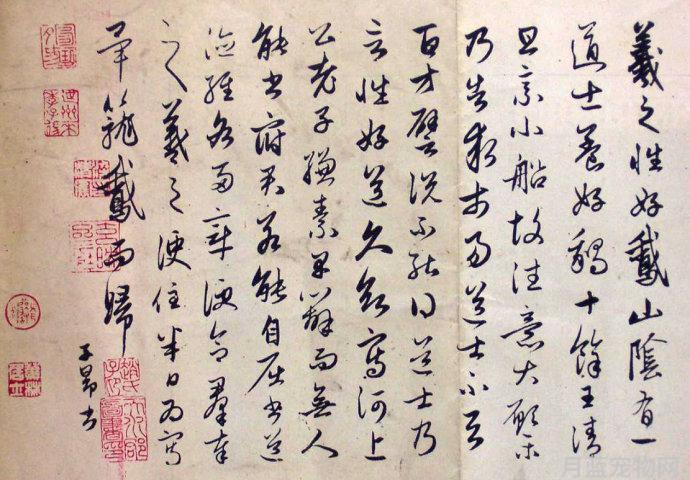 羲之性好鵞山陰有一
道士養好鵝十餘王清
旦乘小船故往意大願樂
乃告求市易道士不與
百方譬說不能得道士乃
言性好道久欲寫河上
公老子縑素早辦而無人
能書府君若能自屈書道
德經各兩章便合羣奉
之羲之便住半日為寫
畢籠鵞而歸
子昂書
月蓝宠物网